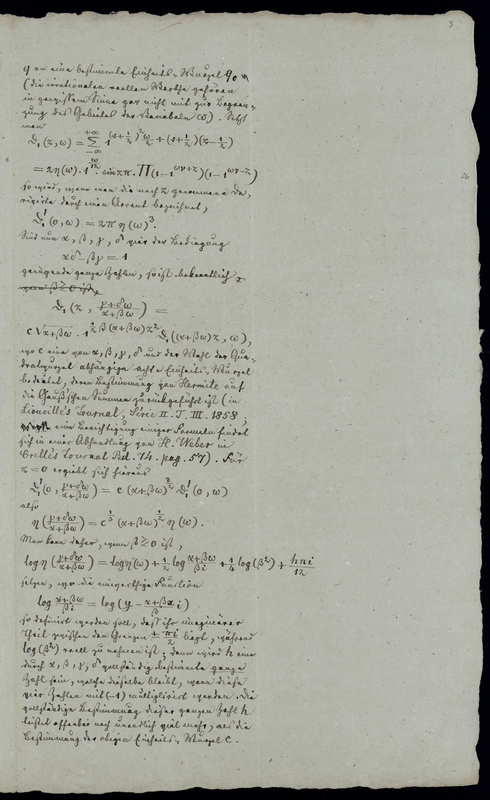 3
q an eine bestimmte Einheits-Wurzel q₀
(die irrationalen reellen Werthe gehören
in gewissem Sinne gar nicht mit zur Begren-
zung des Gebietes der Variabeln ω). Setzt
man
ϑ₁(z,ω) = Σ_{-∞}^{+∞} 1^{(s+½)²ω/2 + (s+½)(z-½)}
= 2η(ω)·1^{ω/12}·sin zπ·Π(1-1^{ων+z})(1-1^{ων-z})
so wird, wenn man die nach z genommene De-
rivirte durch einen Accent bezeichnet,
ϑ₁'(0,ω) = 2π η(ω)³.
Sind nun α, β, γ, δ vier der Bedingung
αδ-βγ = 1
genügende ganze Zahlen, so ist bekanntlich
ϑ₁(z, (γ+δω)/(α+βω)) =
c √(α+βω) · 1^{½β(α+βω)z²} ϑ₁((α+βω)z, ω),
wo c eine von α, β, γ, δ und der Wahl der Qua-
dratwurzel abhängige achte Einheits-Wurzel
bedeutet, deren Bestimmung von Hermite auf
die Gaußischen Summen zurückgeführt ist (in
Liouville's Journal, Série II. T. III. 1858;
eine Berichtigung einiger Formeln findet
sich in einer Abhandlung von H. Weber in
Crelle's Journal Bd. 74. pag. 57). Für
z=0 ergiebt sich hieraus
ϑ₁'(0, (γ+δω)/(α+βω)) = c (α+βω)^{3/2} ϑ₁'(0,ω)
also
η((γ+δω)/(α+βω)) = c^{1/3} (α+βω)^{1/2} η(ω).
Man kann daher, wenn β ≷ 0 ist,
log η((γ+δω)/(α+βω)) = log η(ω) + ½ log (α+βω)/(βi) + ¼ log(β²) + hπi/12
setzen, wo die einwerthige Function
log (α+βω)/(βi) = log(y - (α+βx)/β i)
so definirt werden soll, daß ihr imaginärer
Theil zwischen den Grenzen ± πi/2 liegt, während
log(β²) reell zu nehmen ist; dann wird h eine
durch α, β, γ, δ vollständig bestimmte ganze
Zahl sein, welche dieselbe bleibt, wenn diese
vier Zahlen mit (-1) multiplicirt werden. Die
vollständige Bestimmung dieser ganzen Zahl h
leistet offenbar noch unendlich viel mehr, als die
Bestimmung der obigen Einheits-Wurzel c.